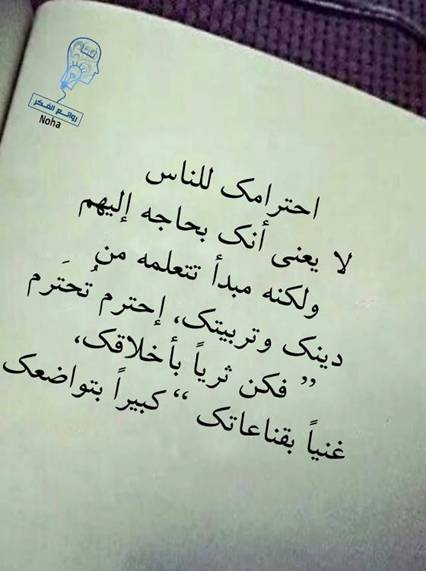 روائع الفكر
Noha
احترامک للناس
لا يعنى أنک بحاجه إليهم
ولكنه مبدأ تتعلمه من
دينک وتربيتک، إحترم تُحتَرم
” فكن ثرياً بأخلاقک،
غنياً بقناعاتک “ كبيراً بتواضعک